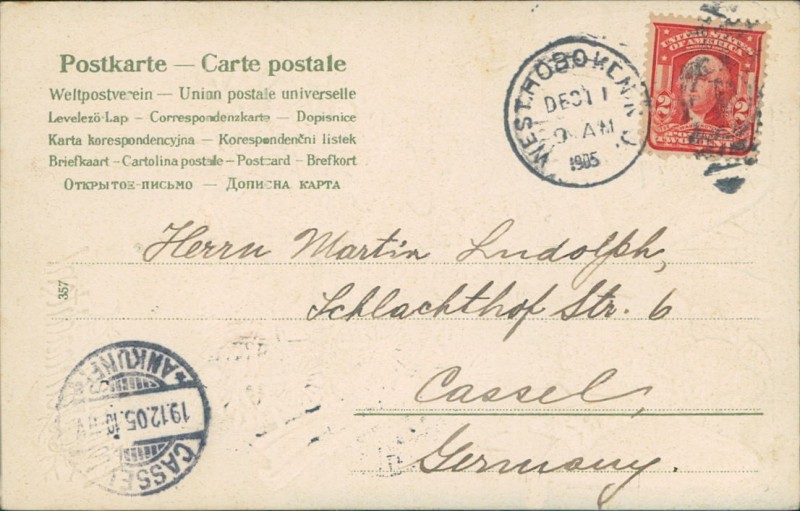 Postkarte — Carte postale
Weltpostverein — Union postale universelle
Levelezö-Lap — Correspondenzkarte — Dopisnice
Karta korespondencyjna — Korespondenční listek
Briefkaart — Cartolina postale — Postcard — Brefkort
Открытое письмо — Дописна карта
WEST HOBOKEN N.J.
DEC 11
9 AM
1905
UNITED STATES
OF AMERICA
2 2
Herrn Martin Ludolph,
Schlachthof Str. 6
Cassel,
Germany.
357
ANKUNFT
19.12.05.
CASSEL